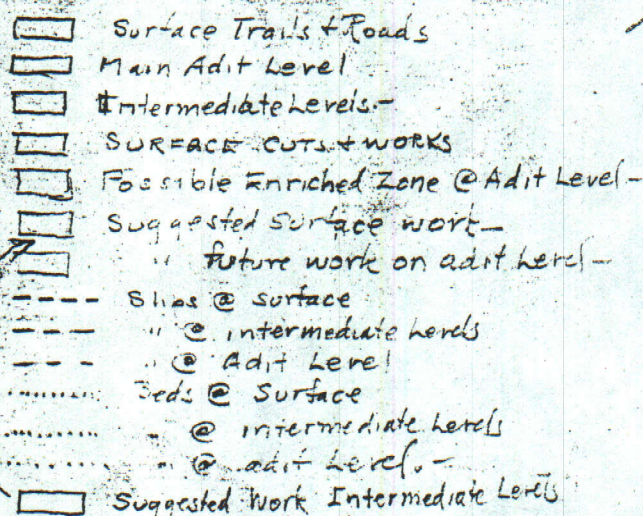 Surface Trails & Roads
Main Adit Level
Intermediate Levels.-
SURFACE CUTS & WORKS
Possible Enriched Zone @ Adit Level-
Suggested Surface work-
" future work on adit Level-
Slips @ surface
" @ intermediate Levels
" @ Adit Level
Beds @ Surface
" @ intermediate Levels
" @ adit Level.-
Suggested Work Intermediate Levels